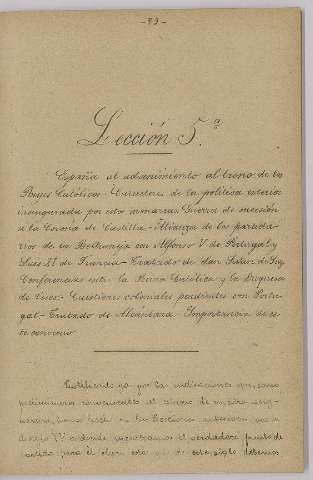 - 53 -
Lección 5.ª
España al advenimiento al trono de los
Reyes Católicos - Caracteres de la política exterior
inaugurada por estos monarcas Guerra de sucesión
a la Corona de Castilla - Alianza de los partida-
rios de la Beltraneja con Alfonso V de Portugal y
Luis XI de Francia - Tratado de San Juan de Luz
Conferencias entre la Reina Católica y la Duquesa
de Viseo - Cuestiones coloniales pendientes con Portu-
gal - Tratado de Alcántara Importancia de es-
te convenio
Justificado ya por las indicaciones que, como
preliminares al de nuestra asig-
natura, hemos hecho en la Lección anterior, que es
el siglo XV a donde encontramos el verdadero punto de
partida para el que de este siglo debemos